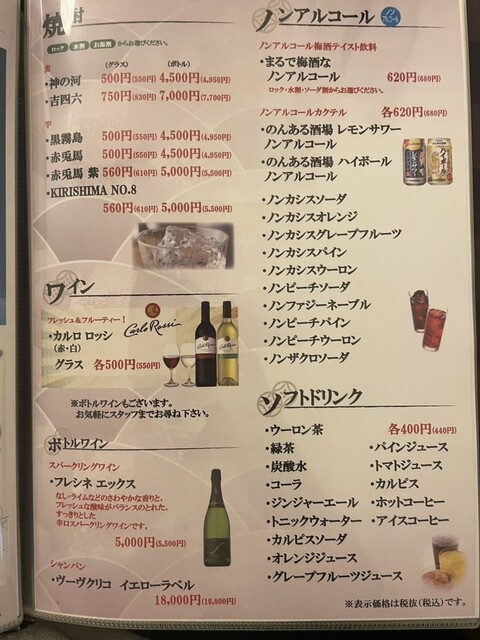 焼酎
ロック 水割 お湯割 からお選びください。
麦 (グラス) (ボトル)
・神の河 500円(550円) 4,500円(4,950円)
・吉四六 750円(830円) 7,000円(7,700円)
芋
・黒霧島 500円(550円) 4,500円(4,950円)
・赤兎馬 500円(550円) 4,500円(4,950円)
・赤兎馬 紫 560円(610円) 5,000円(5,500円)
・KIRISHIMA NO.8
560円(610円) 5,000円(5,500円)
ワイン
フレッシュ&フルーティー!
Carlo Rossi
・カルロ ロッシ
(赤・白)
グラス 各500円(550円)
※ボトルワインもございます。
お気軽にスタッフまでお尋ね下さい。
ボトルワイン
スパークリングワイン
・フレシネ エックス
なし・ライムなどのさわやかな香りと、
フレッシュな酸味がバランスのとれた、
すっきりとした
辛口スパークリングワインです。
5,000円(5,500円)
シャンパン
・ヴーヴクリコ イエローラベル
18,000円(19,800円)
ノンアルコール ノンアルコール
ノンアルコール梅酒テイスト飲料
・まるで梅酒な
ノンアルコール 620円(680円)
ロック・水割・ソーダ割からお選びください。
ノンアルコールカクテル 各620円(680円)
・のんある酒場 レモンサワー
ノンアルコール
・のんある酒場 ハイボール
ノンアルコール
・ノンカシスソーダ
・ノンカシスオレンジ
・ノンカシスグレープフルーツ
・ノンカシスパイン
・ノンカシスウーロン
・ノンピーチソーダ
・ノンファジーネーブル
・ノンピーチパイン
・ノンピーチウーロン
・ノンザクロソーダ
ソフトドリンク
・ウーロン茶 各400円(440円)
・緑茶 ・パインジュース
・炭酸水 ・トマトジュース
・コーラ ・カルピス
・ジンジャーエール ・ホットコーヒー
・トニックウォーター ・アイスコーヒー
・カルピスソーダ
・オレンジジュース
・グレープフルーツジュース
※表示価格は税抜(税込)です。